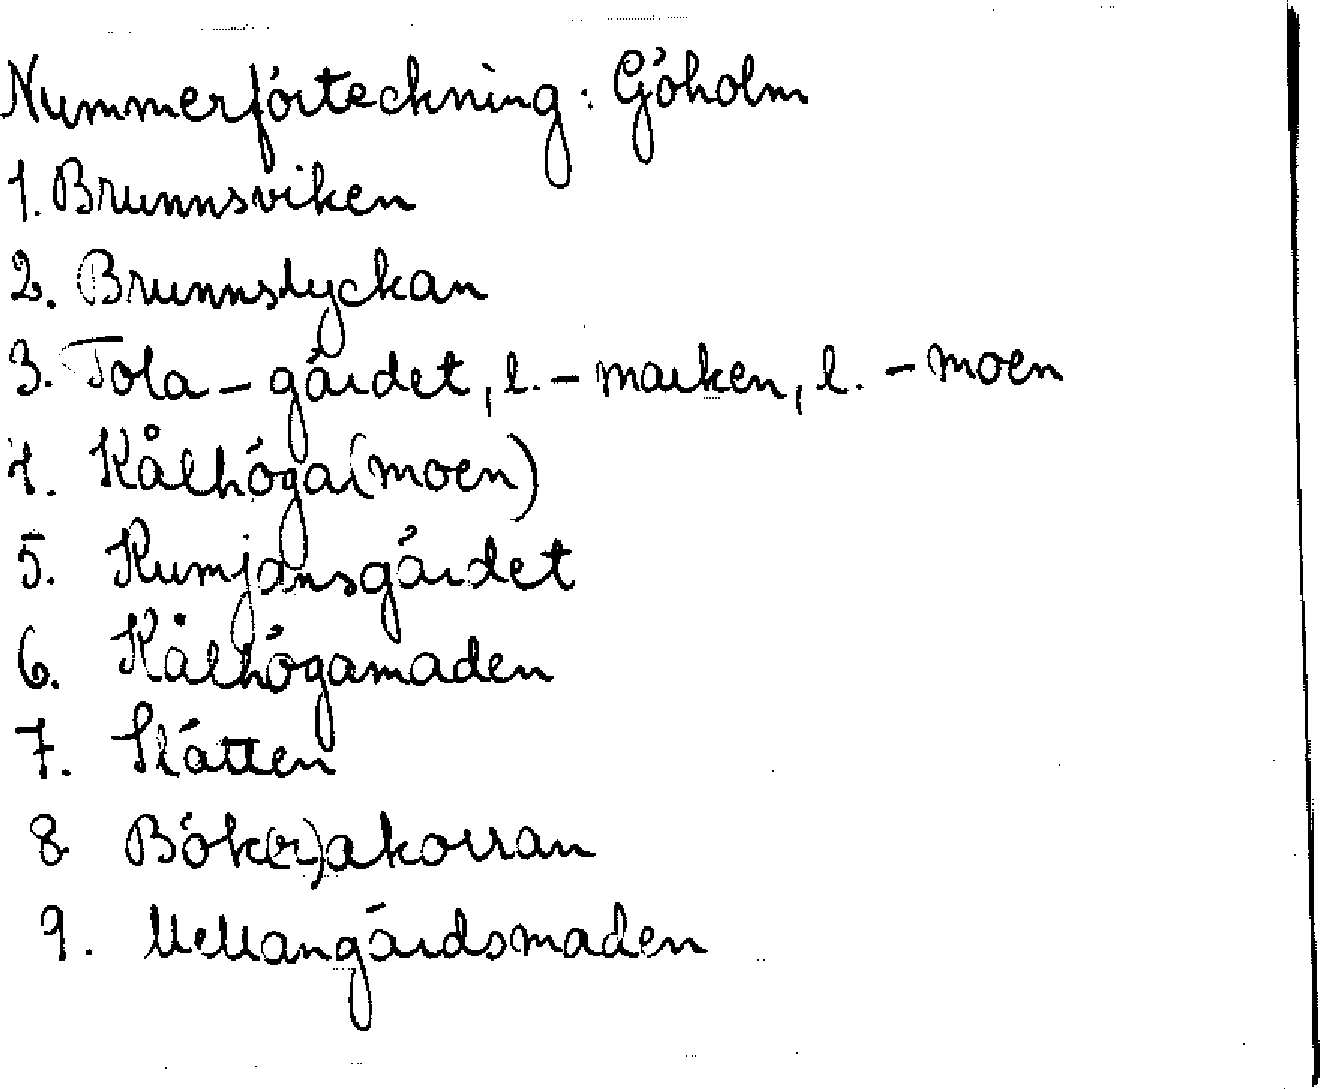 Nummerförteckning: Göholm
1. Brunnsviken
2. Brunnslyckan
3. Tola-gärdet, l. -marken, l. -moen
4. Kålhöga(moen)
5. Rumjansgärdet
6. Kålhögamaden
7. Slätten
8 Bök(r)akorran
9. Mellangärdsmaden